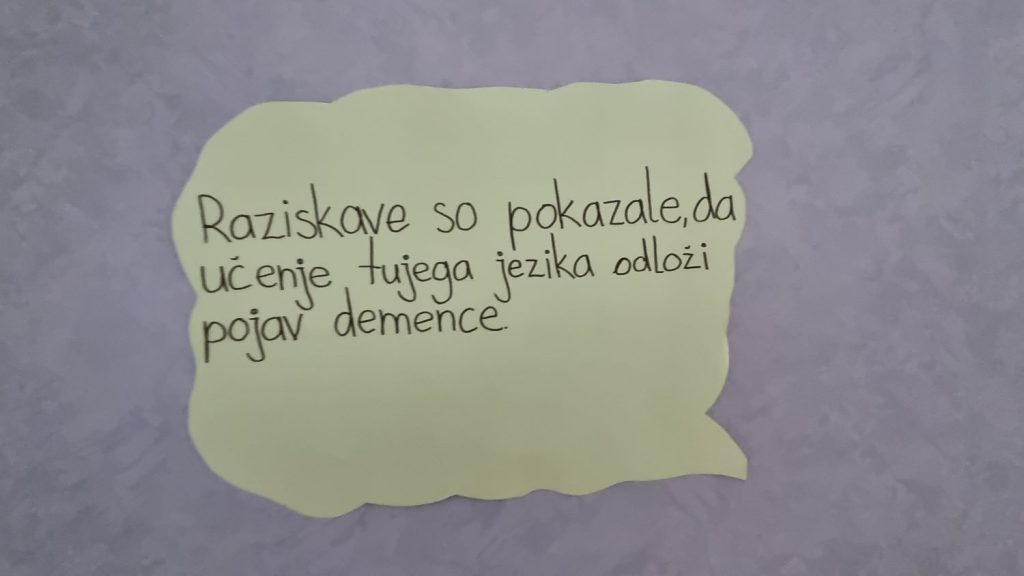 Raziskave so pokazale, da
učenje tujega jezika odloži
pojav demence.